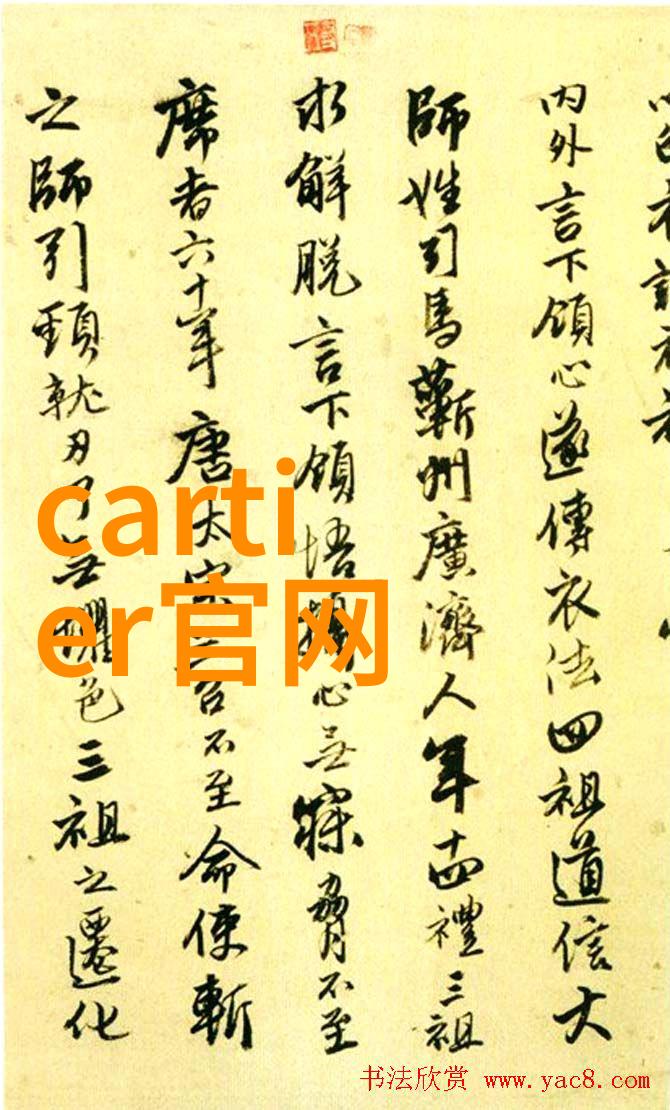 内外言下領心遂傳衣法四祖道信大
師姓司馬蘄州廣濟人年十四禮三祖
求解脱言下領悟攝心無寐脅不至
席者六十年唐太宗三召不至命使斬
之師引頸就刃了無懼色三祖之遷化
carti
er官网
书法欣赏 www.yac8.com